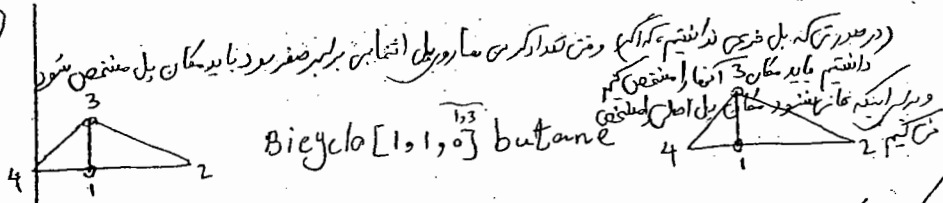 (در صورتی که پل فرعی نداشتیم، که اگر) وقتی تعداد کربن ها روی پل انتهایی برابر صفر بود باید مکان پل مشخص شود
داشتیم باید مکان آنها را مشخص کنیم
و برای اینکه مکان پل اصلی را مشخص
می کنیم.
3
3
Bicyclo[1,1,0] butane
1,3
4 1 2
4 1 2